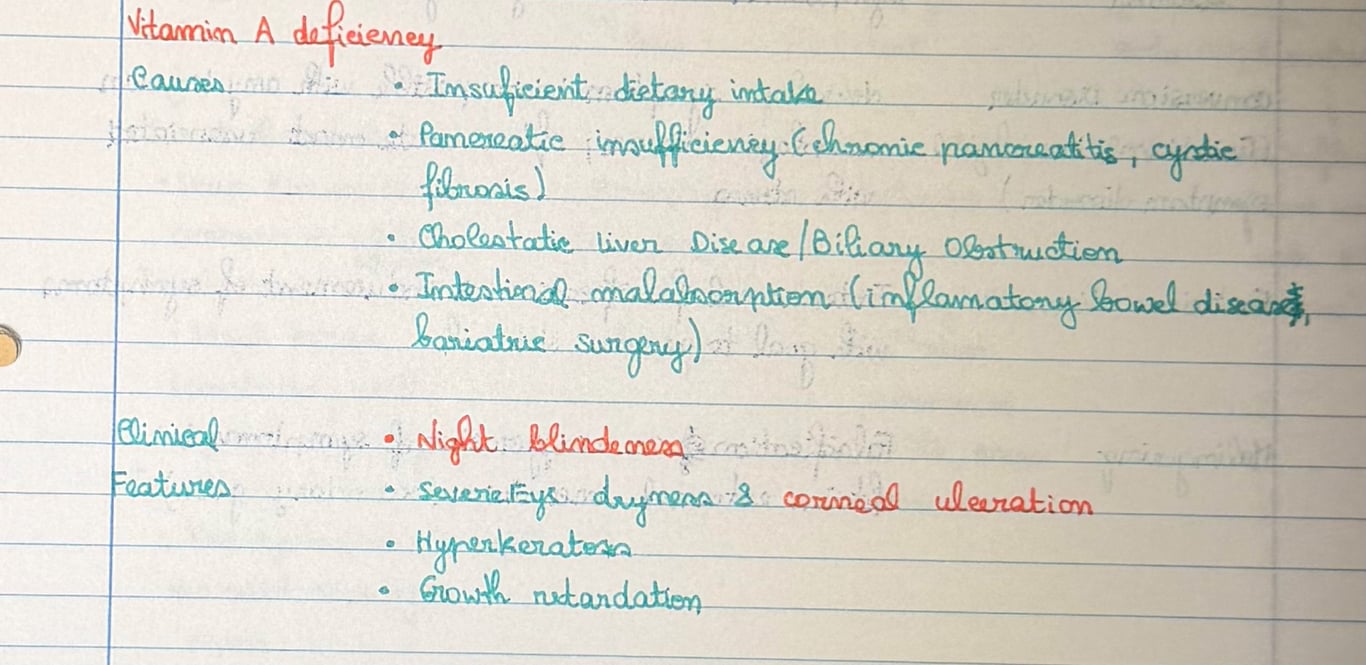 Vitamin A deficiency
Causes • Insuficient dietary intake
• Pancreatic insufficiency (chronic pancreatitis, cystic
fibrosis)
• Cholestatic liver Disease/Biliary Obstruction
• Intestinal malabsorption (inflamatory bowel disease,
bariatric surgery)
Clinical • Night blindeness
Features • Severe Eye dryness & corneal ulceration
• Hyperkeratosis
• Growth retardation